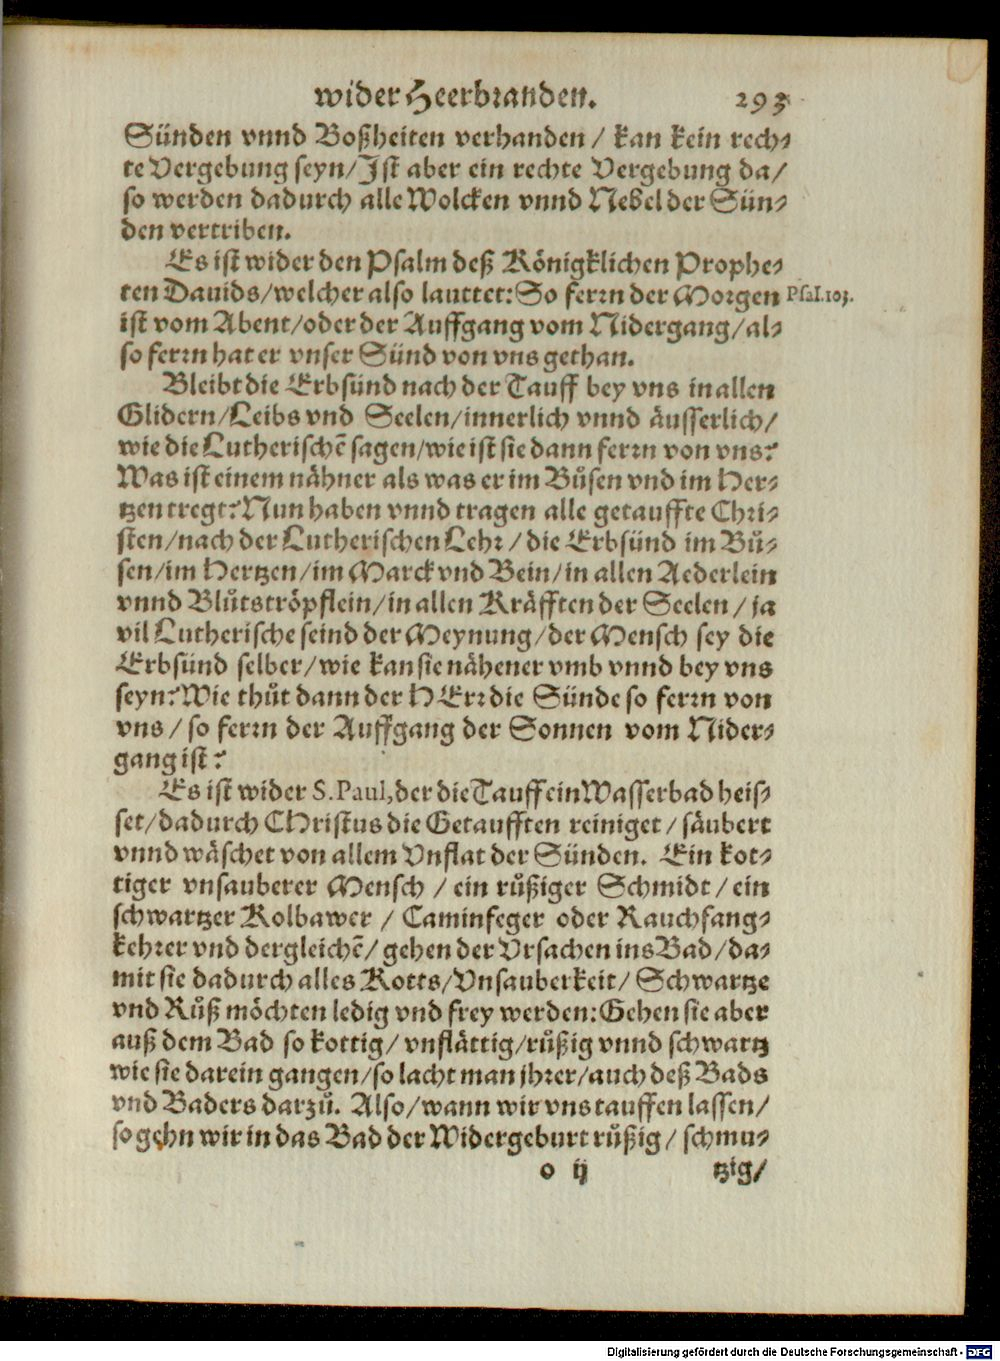 wider Heerbranden. 293
Sünden vnnd Boßheiten verhanden / kan kein rech-
te Vergebung seyn/Ist aber ein rechte Vergebung da/
so werden dadurch alle Wolcken vnnd Nebel der Sün-
den vertriben.
Es ist wider den Psalm deß Königklichen Prophe-
ten Dauids/welcher also lauttet:So ferrn der Morgen Psal.103.
ist vom Abent/oder der Auffgang vom Nidergang/al-
so ferrn hat er vnser Sünd von vns gethan.
Bleibt die Erbsünd nach der Tauff bey vns in allen
Glidern/Leibs vnd Seelen/innerlich vnnd äusserlich/
wie die Lutherischẽ sagen/wie ist sie dann ferrn von vns?
Was ist einem nähner als was er im Bůsen vnd im Her-
tzen tregt?Nun haben vnnd tragen alle getauffte Chri-
sten/nach der Lutherischen Lehr / die Erbsünd im Bů-
sen/im Hertzen/im Marck vnd Bein/in allen Aederlein
vnnd Blůtströpflein/in allen Kräfften der Seelen / ja
vil Lutherische seind der Meynung/der Mensch sey die
Erbsünd selber/wie kan sie nähener vmb vnnd bey vns
seyn?Wie thůt dann der HErr die Sünde so ferrn von
vns / so ferrn der Auffgang der Sonnen vom Nider-
gang ist?
Es ist wider S. Paul,der die Tauff ein Wasserbad heis-
set/dadurch CHristus die Getaufften reiniget / säubert
vnnd wäschet von allem Vnflat der Sünden. Ein kot-
tiger vnsauberer Mensch / ein růßiger Schmidt / ein
schwartzer Kolbawer / Caminfeger oder Rauchfang-
kehrer vnd dergleichẽ/ gehen der Vrsachen ins Bad/da-
mit sie dadurch alles Kotts/Vnsauberkeit/ Schwartze
vnd Růß möchten ledig vnd frey werden:Gehen sie aber
auß dem Bad so kottig/ vnflättig/růßig vnnd schwartz
wie sie darein gangen/so lacht man jhrer/auch deß Bads
vnd Baders darzů. Also/wann wir vns tauffen lassen/
so gehn wir in das Bad der Widergeburt růßig/ schmu-
o ij tzig/
Digitalisierung gefördert durch die Deutsche Forschungsgemeinschaft - DFG